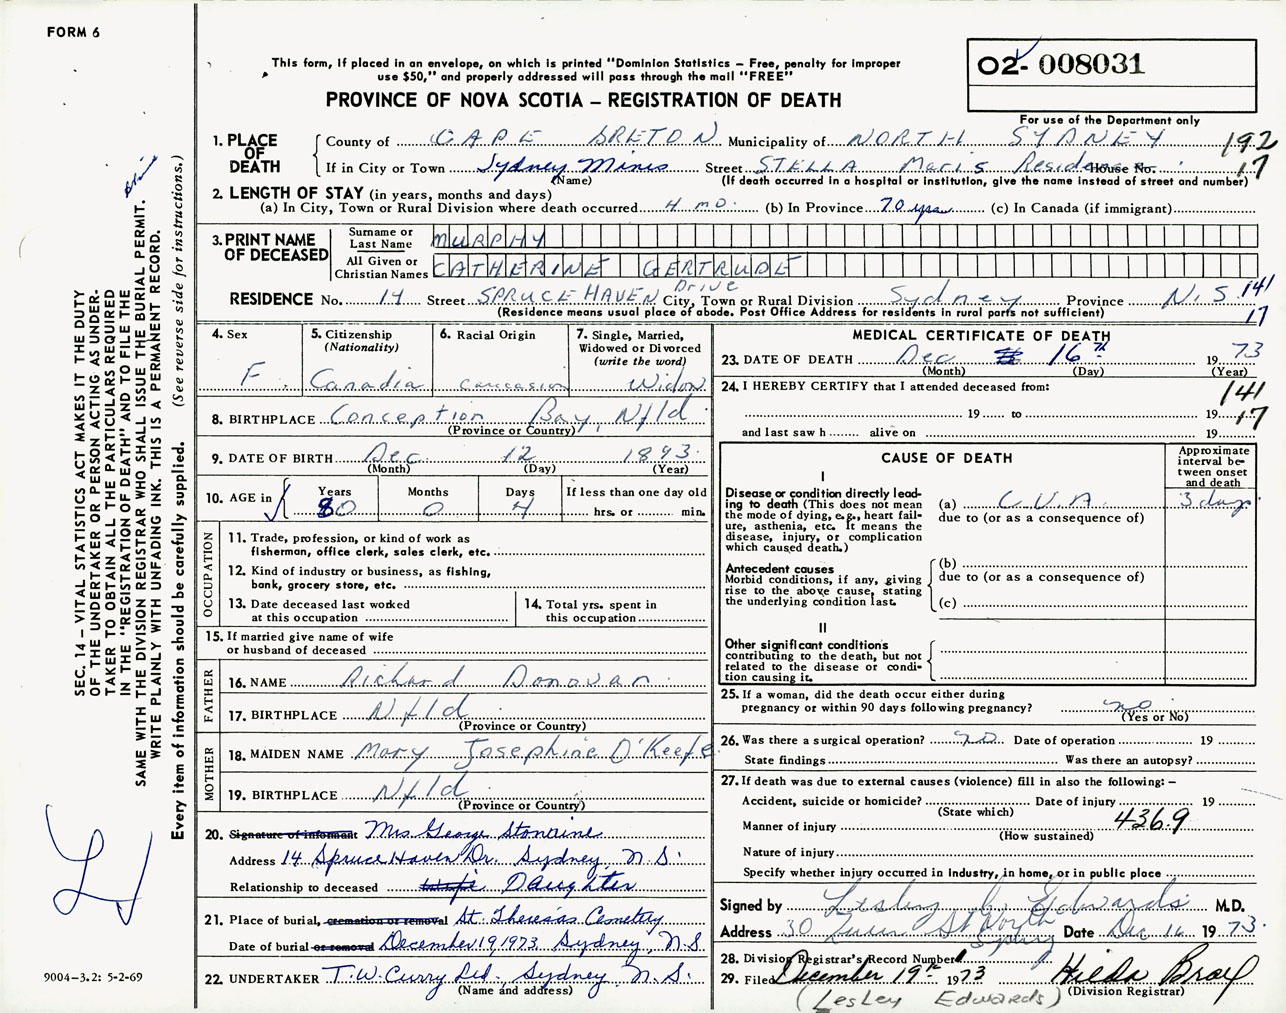 FORM 6
This form, if placed in an envelope, on which is printed "Dominion Statistics – Free, penalty for improper
use $50," and properly addressed will pass through the mail "FREE"
PROVINCE OF NOVA SCOTIA – REGISTRATION OF DEATH
02- 008031
For use of the Department only
SEC. 14 – VITAL STATISTICS ACT MAKES IT THE DUTY
OF THE UNDERTAKER OR PERSON ACTING AS UNDER-
TAKER TO OBTAIN ALL THE PARTICULARS REQUIRED
IN THE "REGISTRATION OF DEATH" AND TO FILE THE
SAME WITH THE DIVISION REGISTRAR WHO SHALL ISSUE THE BURIAL PERMIT.
WRITE PLAINLY WITH UNFADING INK. THIS IS A PERMANENT RECORD.
Every item of information should be carefully supplied. (See reverse side for instructions.)
1. PLACE OF DEATH
County of CAPE BRETON Municipality of NORTH SYDNEY 192
If in City or Town Sydney Mines Street STELLA Maris Residence House No. 17
(Name) (If death occurred in a hospital or institution, give the name instead of street and number)
2. LENGTH OF STAY (in years, months and days)
(a) In City, Town or Rural Division where death occurred 4 mo. (b) In Province 70 yrs (c) In Canada (if immigrant)
3. PRINT NAME OF DECEASED
Surname or Last Name MURPHY
All Given or Christian Names CATHERINE GERTRUDE
RESIDENCE No. 14 Street SPRUCE HAVEN Drive City, Town or Rural Division Sydney Province N.S. 141
(Residence means usual place of abode. Post Office Address for residents in rural parts not sufficient) 17
4. Sex F.
5. Citizenship (Nationality) Canadia
6. Racial Origin caucasion
7. Single, Married, Widowed or Divorced (write the word) Widow
8. BIRTHPLACE Conception Bay, Nfld.
(Province or Country)
9. DATE OF BIRTH Dec 12 1893
(Month) (Day) (Year)
10. AGE in Years 80 Months 0 Days 4 If less than one day old
hrs. or min.
OCCUPATION
11. Trade, profession, or kind of work as
fisherman, office clerk, sales clerk, etc.
12. Kind of industry or business, as fishing,
bank, grocery store, etc.
13. Date deceased last worked
at this occupation
14. Total yrs. spent in
this occupation
15. If married give name of wife
or husband of deceased
FATHER
16. NAME Richard Donovan
17. BIRTHPLACE Nfld
(Province or Country)
MOTHER
18. MAIDEN NAME Mary Josephine O'Keefe
19. BIRTHPLACE Nfld
(Province or Country)
20. Signature of informant Mrs. George Stonrine
Address 14 Spruce Haven Dr. Sydney, N.S.
Relationship to deceased Daughter
21. Place of burial, cremation or removal St. Theresa's Cemetry
Date of burial or removal December 19, 1973 Sydney, N.S.
22. UNDERTAKER T.W. Curry Ltd. Sydney, N.S.
(Name and address)
9004-3.2: 5-2-69
MEDICAL CERTIFICATE OF DEATH
23. DATE OF DEATH Dec 16th 19 73
(Month) (Day) (Year)
24. I HEREBY CERTIFY that I attended deceased from: 141
19 to 19 17
and last saw h alive on 19
CAUSE OF DEATH
Approximate interval between onset and death
I
Disease or condition directly lead-
ing to death (This does not mean
the mode of dying, e.g., heart fail-
ure, asthenia, etc. It means the
disease, injury, or complication
which caused death.)
(a) C.V.A. 3 days
due to (or as a consequence of)
Antecedent causes
Morbid conditions, if any, giving
rise to the above cause, stating
the underlying condition last.
(b)
due to (or as a consequence of)
(c)
II
Other significant conditions
contributing to the death, but not
related to the disease or condi-
tion causing it.
25. If a woman, did the death occur either during
pregnancy or within 90 days following pregnancy? no
(Yes or No)
26. Was there a surgical operation? no Date of operation 19
State findings Was there an autopsy?
27. If death was due to external causes (violence) fill in also the following: –
Accident, suicide or homicide? Date of injury 19
(State which)
Manner of injury 436.9
(How sustained)
Nature of injury
Specify whether injury occurred in industry, in home, or in public place
Signed by Lesley Edwards M.D.
Address 30 St North Sydney Date Dec 16 19 73.
28. Division Registrar's Record Number
29. Filed December 19th 1973 Hilda Bray
(Division Registrar)
(Lesley Edwards)